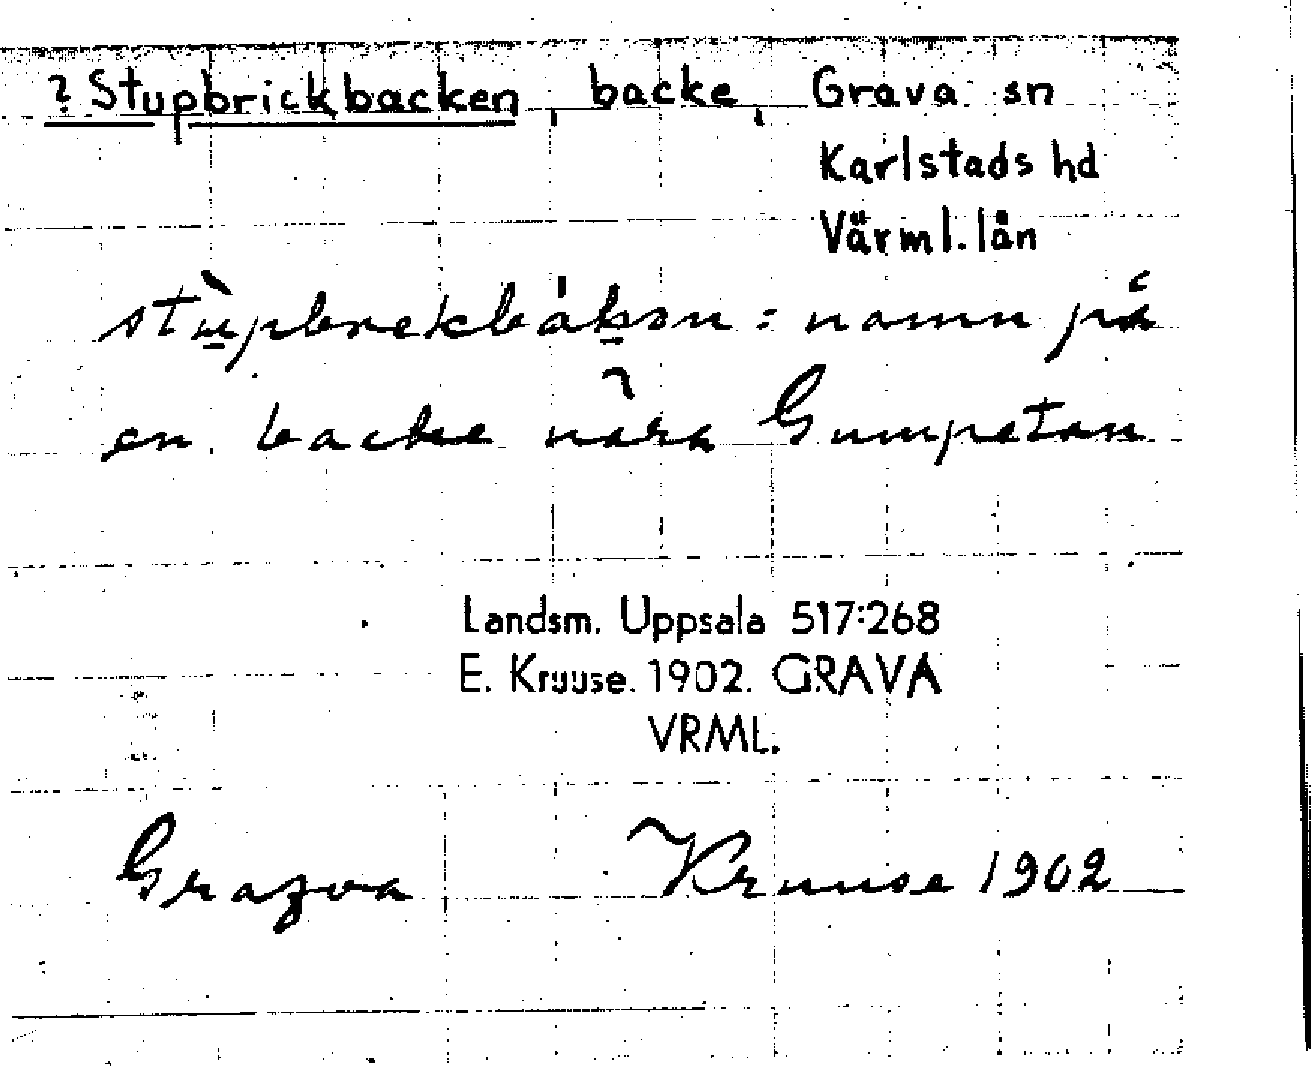 ? Stupbrickbacken, backe, Grava sn
Karlstads hd
Värml. län
stùpbrekbákən: namn på
en backe nära Gumpetan
Landsm. Uppsala 517:268
E. Kruuse. 1902. GRAVA
VRML.
Kruuse 1902